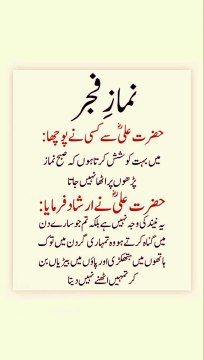 نمازِ فجر
حضرت علیؓ سے کسی نے پوچھا:
میں بہت کوشش کرتا ہوں کہ صبح نماز
پڑھوں پر اٹھا نہیں جاتا
حضرت علیؓ نے ارشاد فرمایا:
یہ نیند کی وجہ نہیں ہے بلکہ تم جو سارے دن
میں گناہ کرتے ہو وہ تمہاری گردن میں توک
ہاتھوں میں ہتھکڑی اور پاؤں میں بیڑیاں بن
کر تمہیں اٹھنے نہیں دیتا